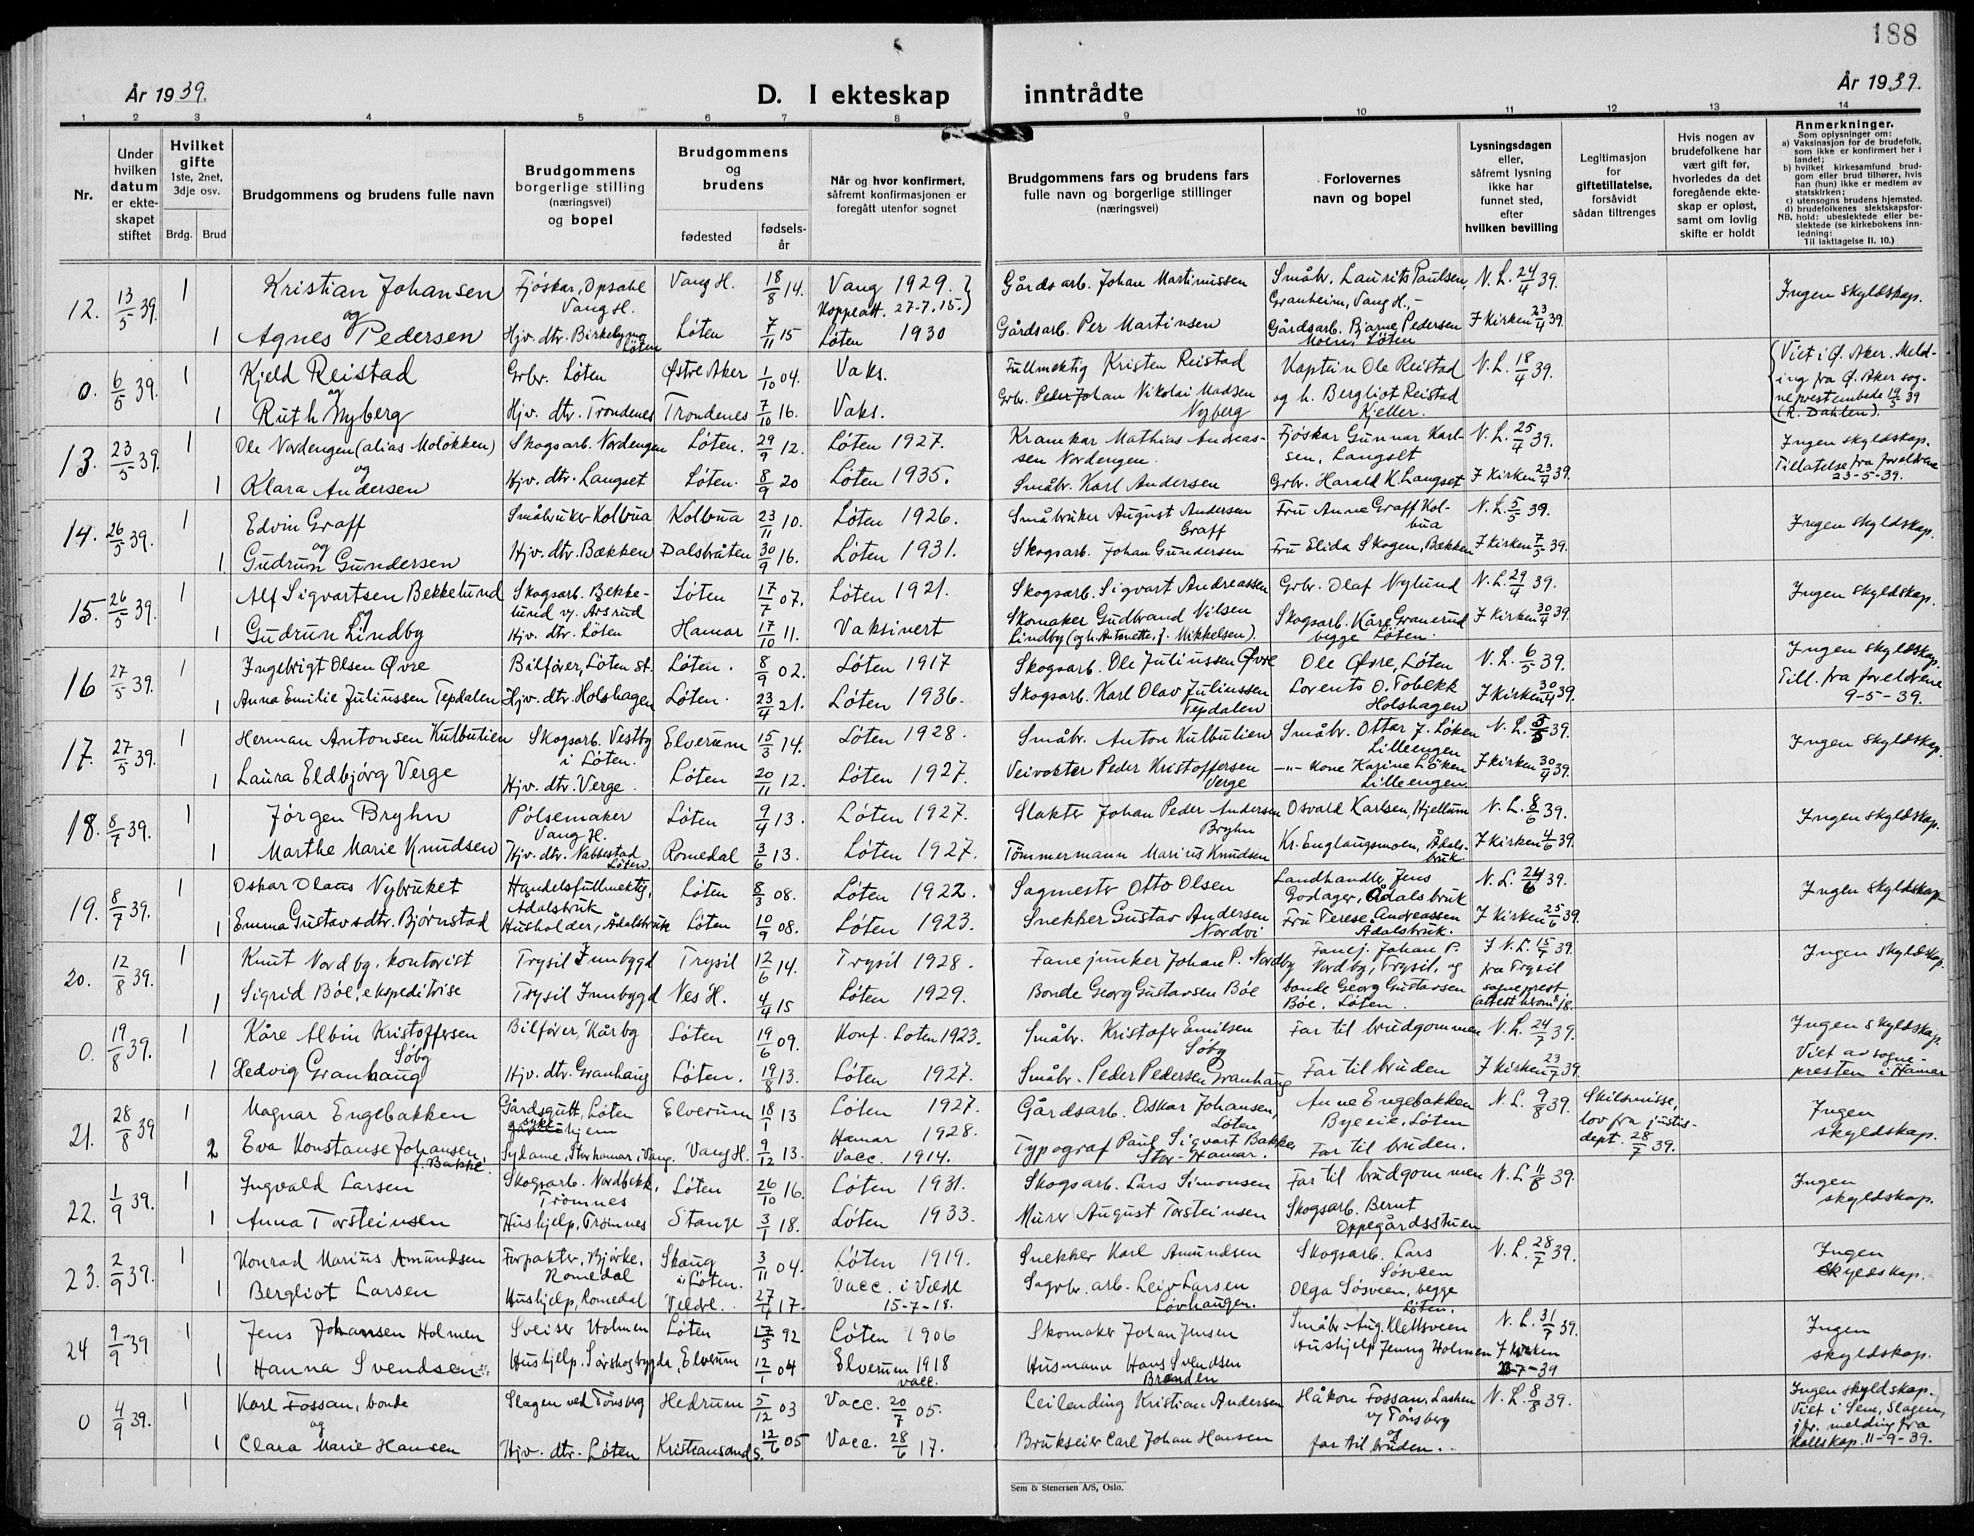 188
År 1939.
D. I ekteskap inntrådte
År 1939.
1 2 3 4 5 6 7 8 9 10 11 12 13 14
Nr.
Under hvilken datum er ekteskapet stiftet
Hvilket gifte 1ste, 2net, 3dje osv.
Brdg. Brud
Brudgommens og brudens fulle navn
Brudgommens borgerlige stilling (næringsvei) og bopel
Brudgommens og brudens
fødested
fødselsår
Når og hvor konfirmert, såfremt konfirmasjonen er foregått utenfor sognet
Brudgommens fars og brudens fars fulle navn og borgerlige stillinger (næringsvei)
Forlovernes navn og bopel
Lysningsdagen eller, såfremt lysning ikke har funnet sted, efter hvilken bevilling
Legitimasjon for giftetillatelse, forsåvidt sådan tiltrenges
Hvis nogen av brudefolkene har vært gift før, hvorledes da det foregående ekteskap er opløst, samt om lovlig skifte er holdt
Anmerkninger.
Som oplysninger om:
a) Vaksinasjon for de brudefolk, som ikke er konfirmert her i landet;
b) hvilket kirkesamfund brudgom eller brud tilhører, hvis han (hun) ikke er medlem av statskirken;
c) utensogns brudens hjemsted.
d) brudefolkenes slektskapsforhold: ubeslektede eller beslektede (se kirkebokens innledning:
NB. Til iakttagelse II. 10.)
12. 13/5 39. 1 Kristian Johansen Fjøskar, Opsahl Vang H. Vang H. 18/8 14. Vang 1929. Koppeatt. 27-7.15. Gårdsarb. Johan Martinussen Småbr. Laurits Paulsen, Granheim, Vang H. N. L. 24/4 39. Ingen skyldskap.
og
1 Agnes Pedersen Hjv. dtr. Birkebymo Løten Løten 7/11 15 Løten 1930 Gårdsarb. Per Martinsen Gårdsarb. Bjarne Pedersen Moen, Løten I Kirken 23/4 39.
0. 6/5 39. 1 Kjeld Reistad Grbr. Løten Østre Aker 1/10 04. Vaks. Fullmektig Kristen Reistad Kaptein Ole Reistad N. L. 18/4 39. Viet i Ø. Aker. Melding fra Ø. Aker sogneprestembede 19/5 39 (R. Dahlen).
og
1 Ruth Nyberg Hjv. dtr. Trondenes Trondenes 7/10 16. Vaks. Grbr. Peder Johan Nikolai Madsen Nyberg og h. Bergliot Reistad Kjeller.
13. 23/5 39. 1 Ole Nordengen (alias Moløkken) Skogsarb. Nordengen Løten. 29/9 12. Løten 1927. Kramkar Mathias Andreassen Nordengen. Fjøskar Gunnar Karlsen, Langset N. L. 25/4 39. Ingen skyldskap. Tillatelse fra foreldrene 23-5-39.
og
1 Klara Andersen Hjv. dtr. Langset Løten. 8/9 20 Løten 1935. Småbr. Karl Andersen Grbr. Harald K. Langset I Kirken 23/4 39.
14. 26/5 39. 1 Edvin Graff Småbruker Kolbua Kolbua 23/11 10. Løten 1926. Småbruker August Andersen Graff Fru Anne Graff Kolbua N. L. 5/5 39. Ingen skyldskap.
og
1. Gudrun Gundersen Hjv. dtr. Bækken Dalsbråten 30/9 16. Løten 1931. Skogsarb. Johan Gundersen Fru Elida Skogen, Bækken I Kirken 7/5 39.
15. 26/5 39. 1 Alf Sigvartsen Bekkelund Skogsarb. Bekkelund v/ Aasrud Løten 17/7 07. Løten 1921. Skogsarb. Sigvart Andreassen Grbr. Olaf Nylund N. L. 29/4 39. Ingen skyldskap.
og
1 Gudrun Lindby Hjv. dtr. Løten Hamar 17/10 11. Vaksinert Skomaker Gudbrand Nilsen Lindby (og h. Antonette, f. Mikkelsen). Skogsarb. Kåre Granerud begge Løten. I Kirken 30/4 39.
16 27/5 39. 1 Ingebrigt Olsen Øvre Bilfører, Løten st. Løten. 8/9 02. Løten 1917 Skogsarb. Ole Juliussen Øvre Ole Øvre, Løten N. L. 6/5 39. Ingen skyldskap. Till. fra foreldrene 9-5-39.
1 Anna Emilie Juliussen Tepdalen Hjv. dtr. Holshagen Løten. 23/4 21. Løten 1936. Skogsarb. Karl Olav Juliussen Tepdalen Lorents O. Tobekk Holshagen I Kirken 30/4 39.
17. 27/5 39. 1 Herman Antonsen Kulbulien Skogsarb. Vestby i Løten. Elverum 15/3 14. Løten 1928. Småbr. Anton Kulbulien Småbr. Ottar J. Løken Lilleengen N. L. 5/5 39. Ingen skyldskap.
1 Laura Eldbjørg Verge Hjv. dtr. Verge. Løten 20/11 12. Løten 1927. Veivokter Peder Kristoffersen Verge -"- Kone Karine Løken Lilleengen I Kirken 30/4 39.
18. 8/7 39. 1 Jørgen Bryhn Pølsemaker Vang H. Løten 9/4 13. Løten 1927. Slakter Johan Peder Andersen Bryhn Osvald Karlsen, Hjellum N. L. 8/6 39. Ingen skyldskap.
1 Marthe Marie Knudsen Hjv. dtr. Nabbestad Løten Romedal 3/6 13. Løten 1927. Tømmermann Marius Knudsen Kr. Englaugsmoen, Ådalsbruk. I Kirken 4/6 39.
19. 8/7 39. 1 Oskar Olaus Nybruket Handelsfullmektig, Ådalsbruk Løten 8/3 08. Løten 1922. Sagmester Otto Olsen Landhandler Jens Godager, Ådalsbruk N. L. 24/6 39. Ingen skyldskap
1 Emma Gustavsdtr. Bjørnstad Husholder, Ådalsbruk Løten 10/9 08. Løten 1923. Snekker Gustav Andersen Nordvi Fru Terese Andreassen Ådalsbruk. I Kirken 25/6 39.
20. 12/8 39. 1 Knut Nordby, kontorist Trysil Innbygd Trysil 12/6 14. Trysil 1928. Fanejunker Johan P. Nordby Fanej. Johan P. Nordby, Trysil, og I N. L. 15/7 39. fra Trysil sogneprest Ingen skyldskap.
1 Sigrid Bøe, ekspeditrise Trysil Innbygd Nes H. 4/4 15 Løten 1929. Bonde Georg Gustavsen Bøe bonde Georg Gustavsen Bøe, Løten.
0. 19/8 39. 1 Kåre Albin Kristoffersen Søby Bilfører, Kårby Løten 19/6 09. Konf. Løten 1923. Småbr. Kristofer Emilsen Søby Far til brudgommen N. L. 24/7 39. Ingen skyldskap. Viet av sognepresten i Hamar
1 Hedvig Granhaug Hjv. dtr. Granhaug Løten. 19/8 13. Løten 1927. Småbr. Peder Pedersen Granhaug Far til bruden I Kirken 23/7 39.
21. 28/8 39 1 Magnar Engebakken Gårdsgutt, Løten sykehjem Elverum 18/1 13 Løten 1927. Gårdsarb. Oskar Johansen, Løten Anne Engebakken Byeeie, Løten N. L. 9/8 39. Skilsmisse, lov fra justisdept. 28/7 39. Ingen skyldskap.
2 Eva Konstanse Johansen f. Bakke. Sydame, Storhamar i Vang. Vang H. 9/12 13. Hamar 1928. Vacc. 1914. Typograf Paul Sigvart Bakke Stor-Hamar. Far til bruden.
22. 1/9 39. 1 Ingvald Larsen Skogsarb. Nordbekk, Trømnes Løten 26/10 16. Løten 1931. Skogsarb. Lars Simonsen Far til brudgommen N. L. 11/8 39. Ingen skyldskap.
1 Anna Torsteinsen Hushjelp, Trømnes Stange 3/1 18. Løten 1933. Murer August Torsteinsen Skogsarb. Bernt Oppegårdsstuen
23. 2/9 39. 1 Konrad Marius Amundsen Forpakter, Bjørke, Romedal Skaug i Løten. 3/11 04. Løten 1919. Snekker Karl Amundsen Skogsarb. Lars Søsveen N. L. 28/7 39. Ingen skyldskap.
1 Bergliot Larsen Hushjelp, Romedal Veldre. 27/1 17. Vacc. i Veldre 15-7-18. Sagbr. arb. Leiv Larsen Løvhaugen. Olga Søsveen, begge Løten.
24 9/9 39 1 Jens Johansen Holmen Sveiser Holmen Løten 17/5 92 Løten 1906 Skomaker Johan Jensen Småbr. Aug. Klettsveen N. L. 31/7 39. Ingen skyldskap.
1 Hanna Svendsen Hushjelp. Sørskogbygda Elverum 12/1 04 Elverum 1918 vacc. Husmann Hans Svendsen Brenden Hushjelp Jenny Holmen I Kirken -7-39
0 4/9 39. 1 Karl Fossan, bonde Slagen ved Tønsberg Hedrum 5/12 03 Vacc. 20/7 05. Leilending Kristian Andersen Håkon Fossan, Lasken v/ Tønsberg N. L. 8/8 39. Ingen skyldskap. Viet i Sem, Slagen, jfr. melding fra Kallskap. 11-9-39.
og
1 Clara Marie Hansen Hjv. dtr. Løten Kristiansand S. 12/6 05 Vacc. 28/6 17. Brukseier Carl Johan Hansen og far til bruden.
Sem & Stenersen A/S, Oslo.